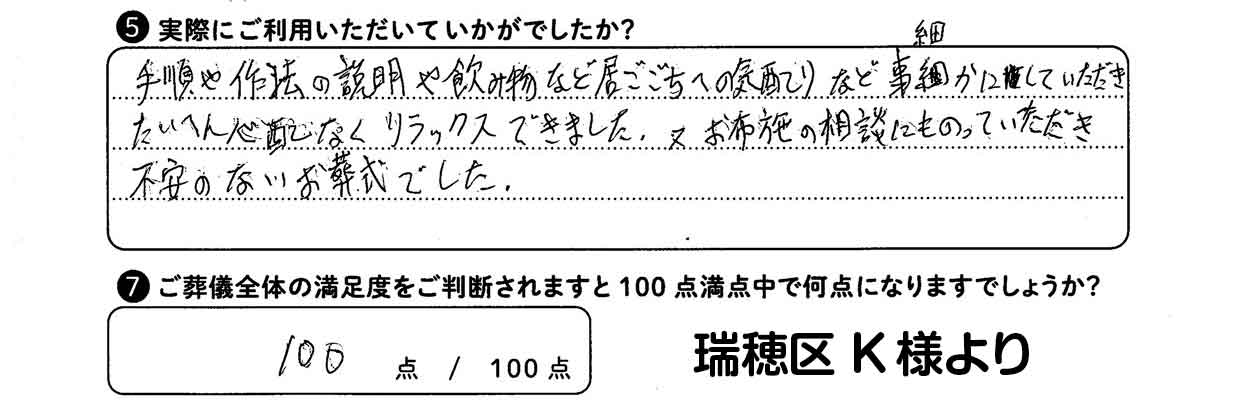 ❺ 実際にご利用いただいていかがでしたか?
細
手順や作法の説明や飲み物など居ごごちへの気配りなど事細かに していただき
たいへん心配なくリラックスできました. 又お布施の相談にものっていただき
不安のないお葬式でした.
❼ ご葬儀全体の満足度をご判断されますと100点満点中で何点になりますでしょうか?
100 点 / 100点
瑞穂区 K様より